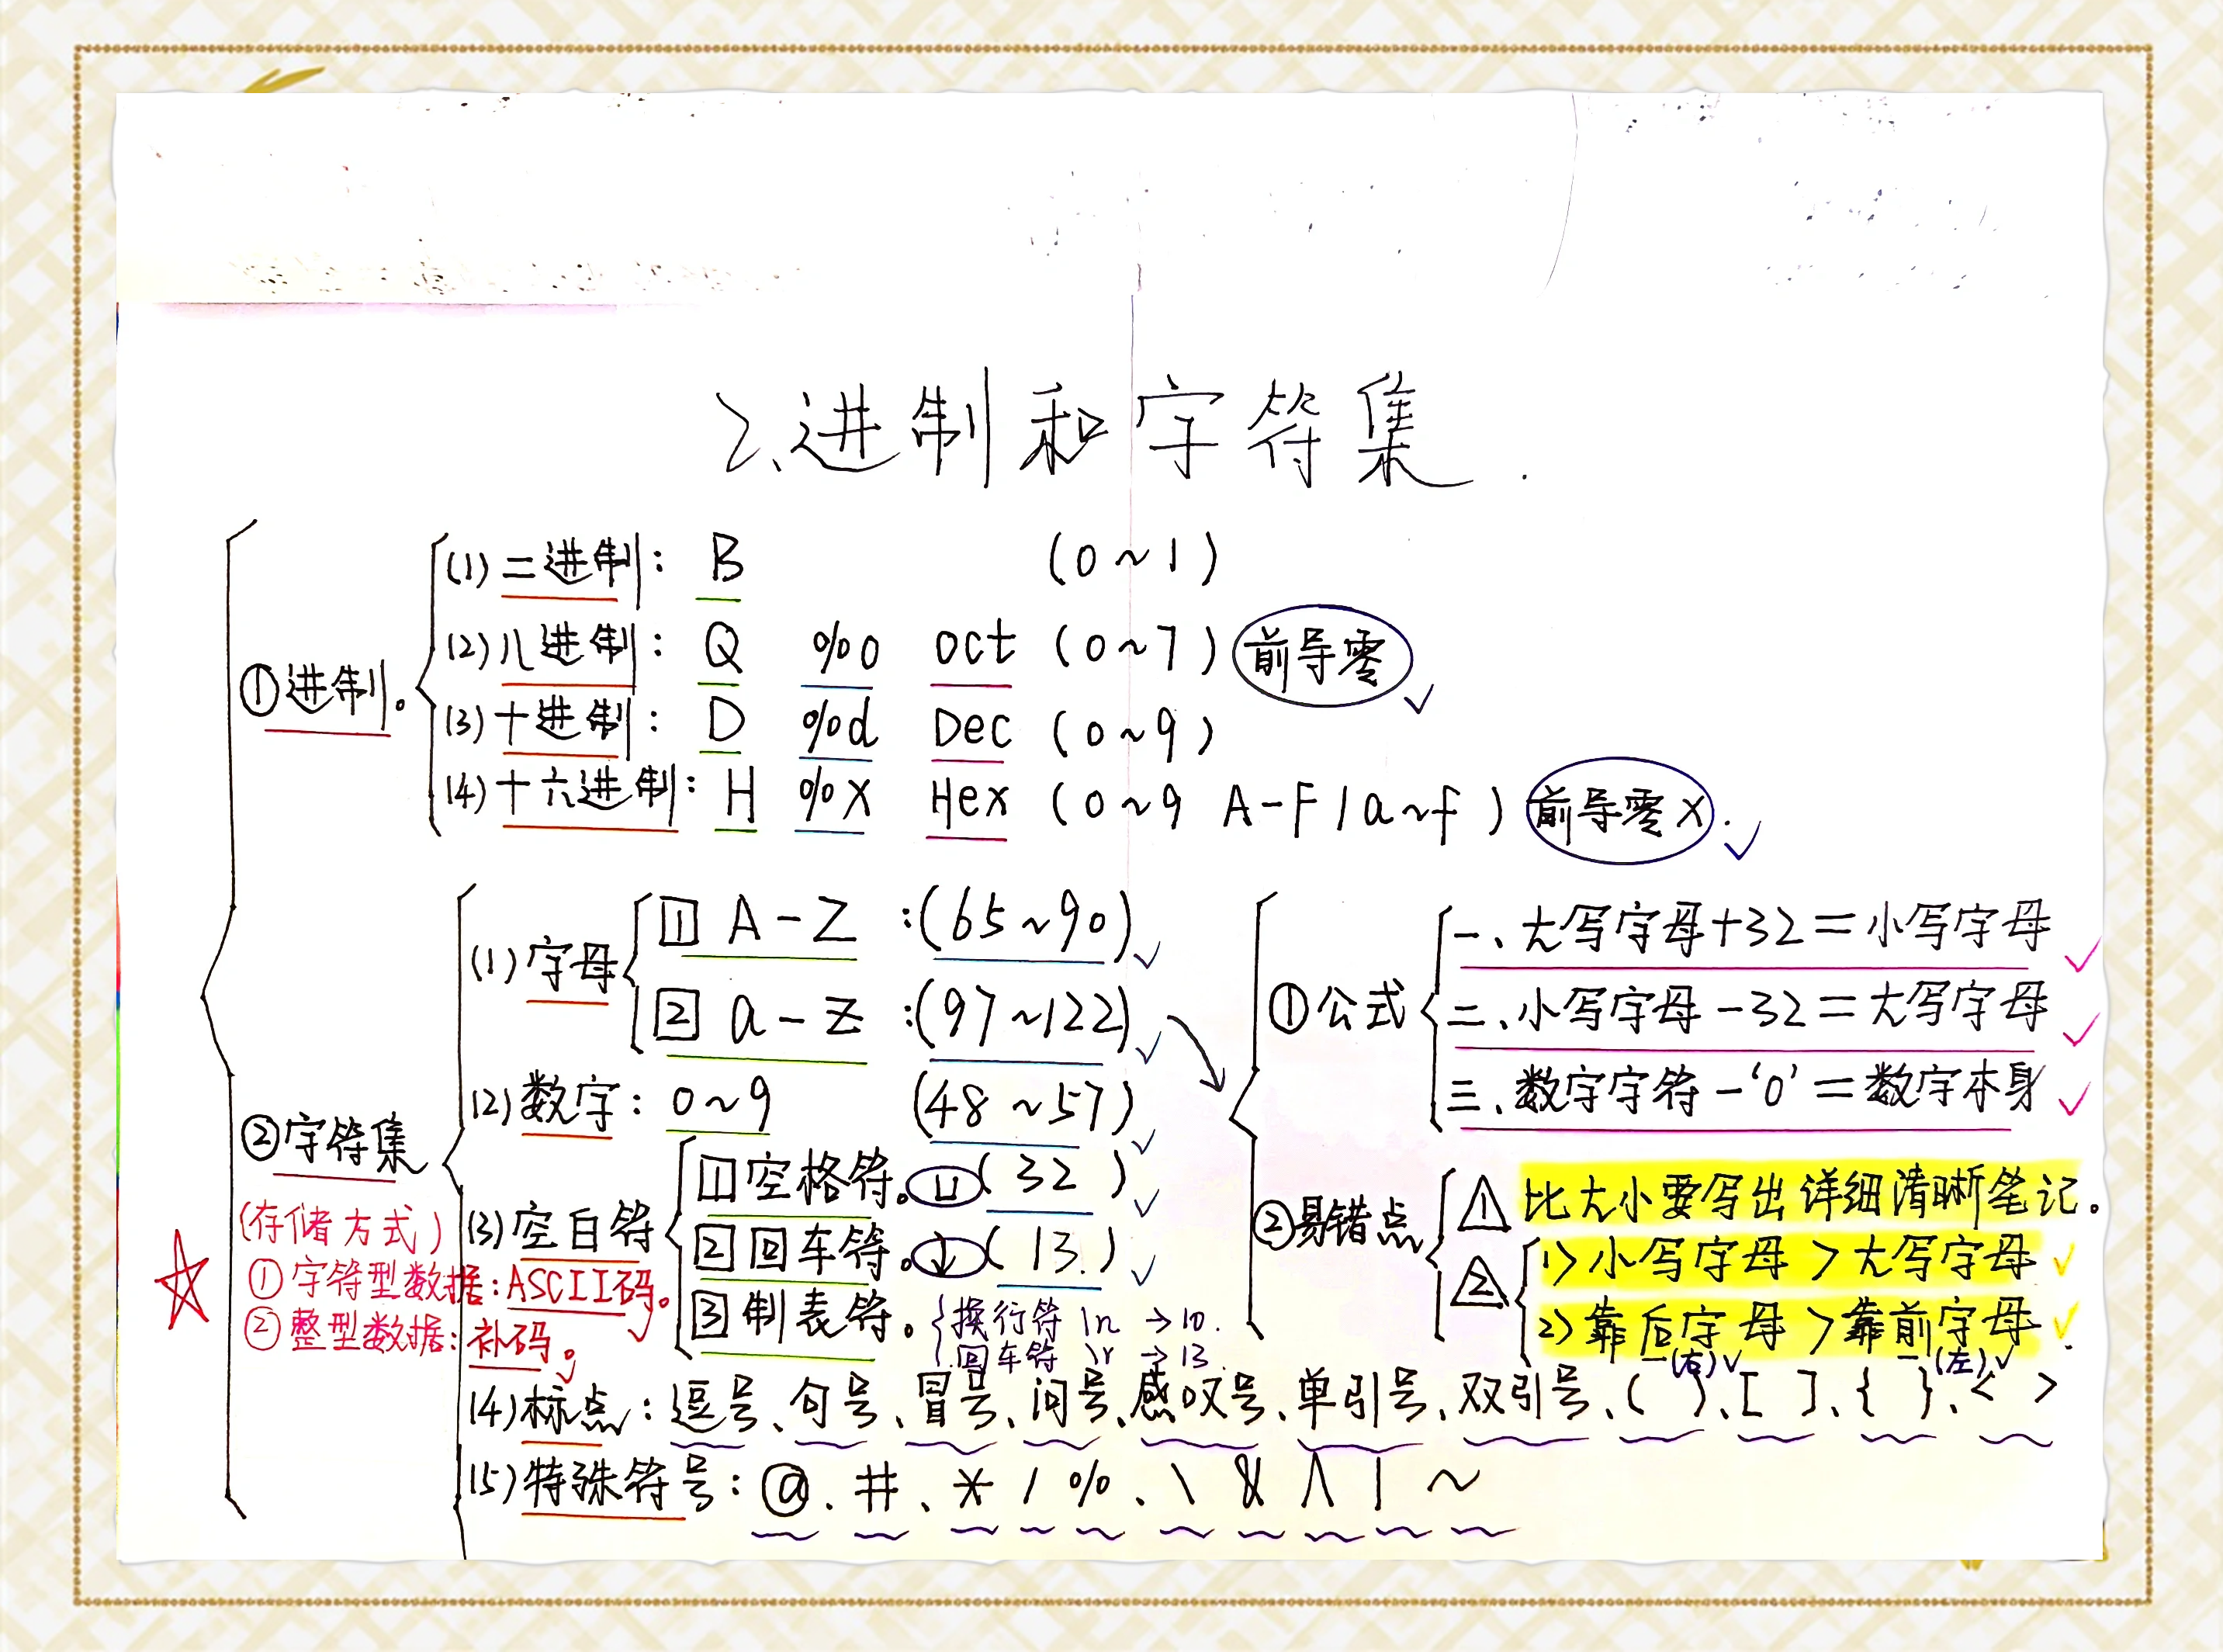 2、进制和字符集.
①进制。
(1)二进制: B (0~1)
(2)八进制: Q %o oct (0~7) 前导零
(3)十进制: D %d Dec (0~9)
(4)十六进制: H %x Hex (0~9 A-F/a~f) 前导零x.
②字符集
(存储方式)
①字符型数据:ASCII码。
②整型数据:补码。
(1)字母
1 A-Z :(65~90)
2 a-z :(97~122)
(2)数字: 0~9 (48~57)
(3)空白符
1 空格符。⊔(32)
2 回车符。↓(13.)
3 制表符。
换行符 \n →10.
回车符 \r →13
(4)标点:逗号、句号、冒号、问号、感叹号、单引号、双引号、( )、[ ]、{ }、< >
(5)特殊符号:@、#、* / %、\ & ∧ | ~
①公式
一、大写字母+32=小写字母
二、小写字母-32=大写字母
三、数字字符-'0'=数字本身
②易错点
1 比大小要写出详细清晰笔记。
2 1>小写字母>大写字母
2>靠后字母>靠前字母.
(右) (左)